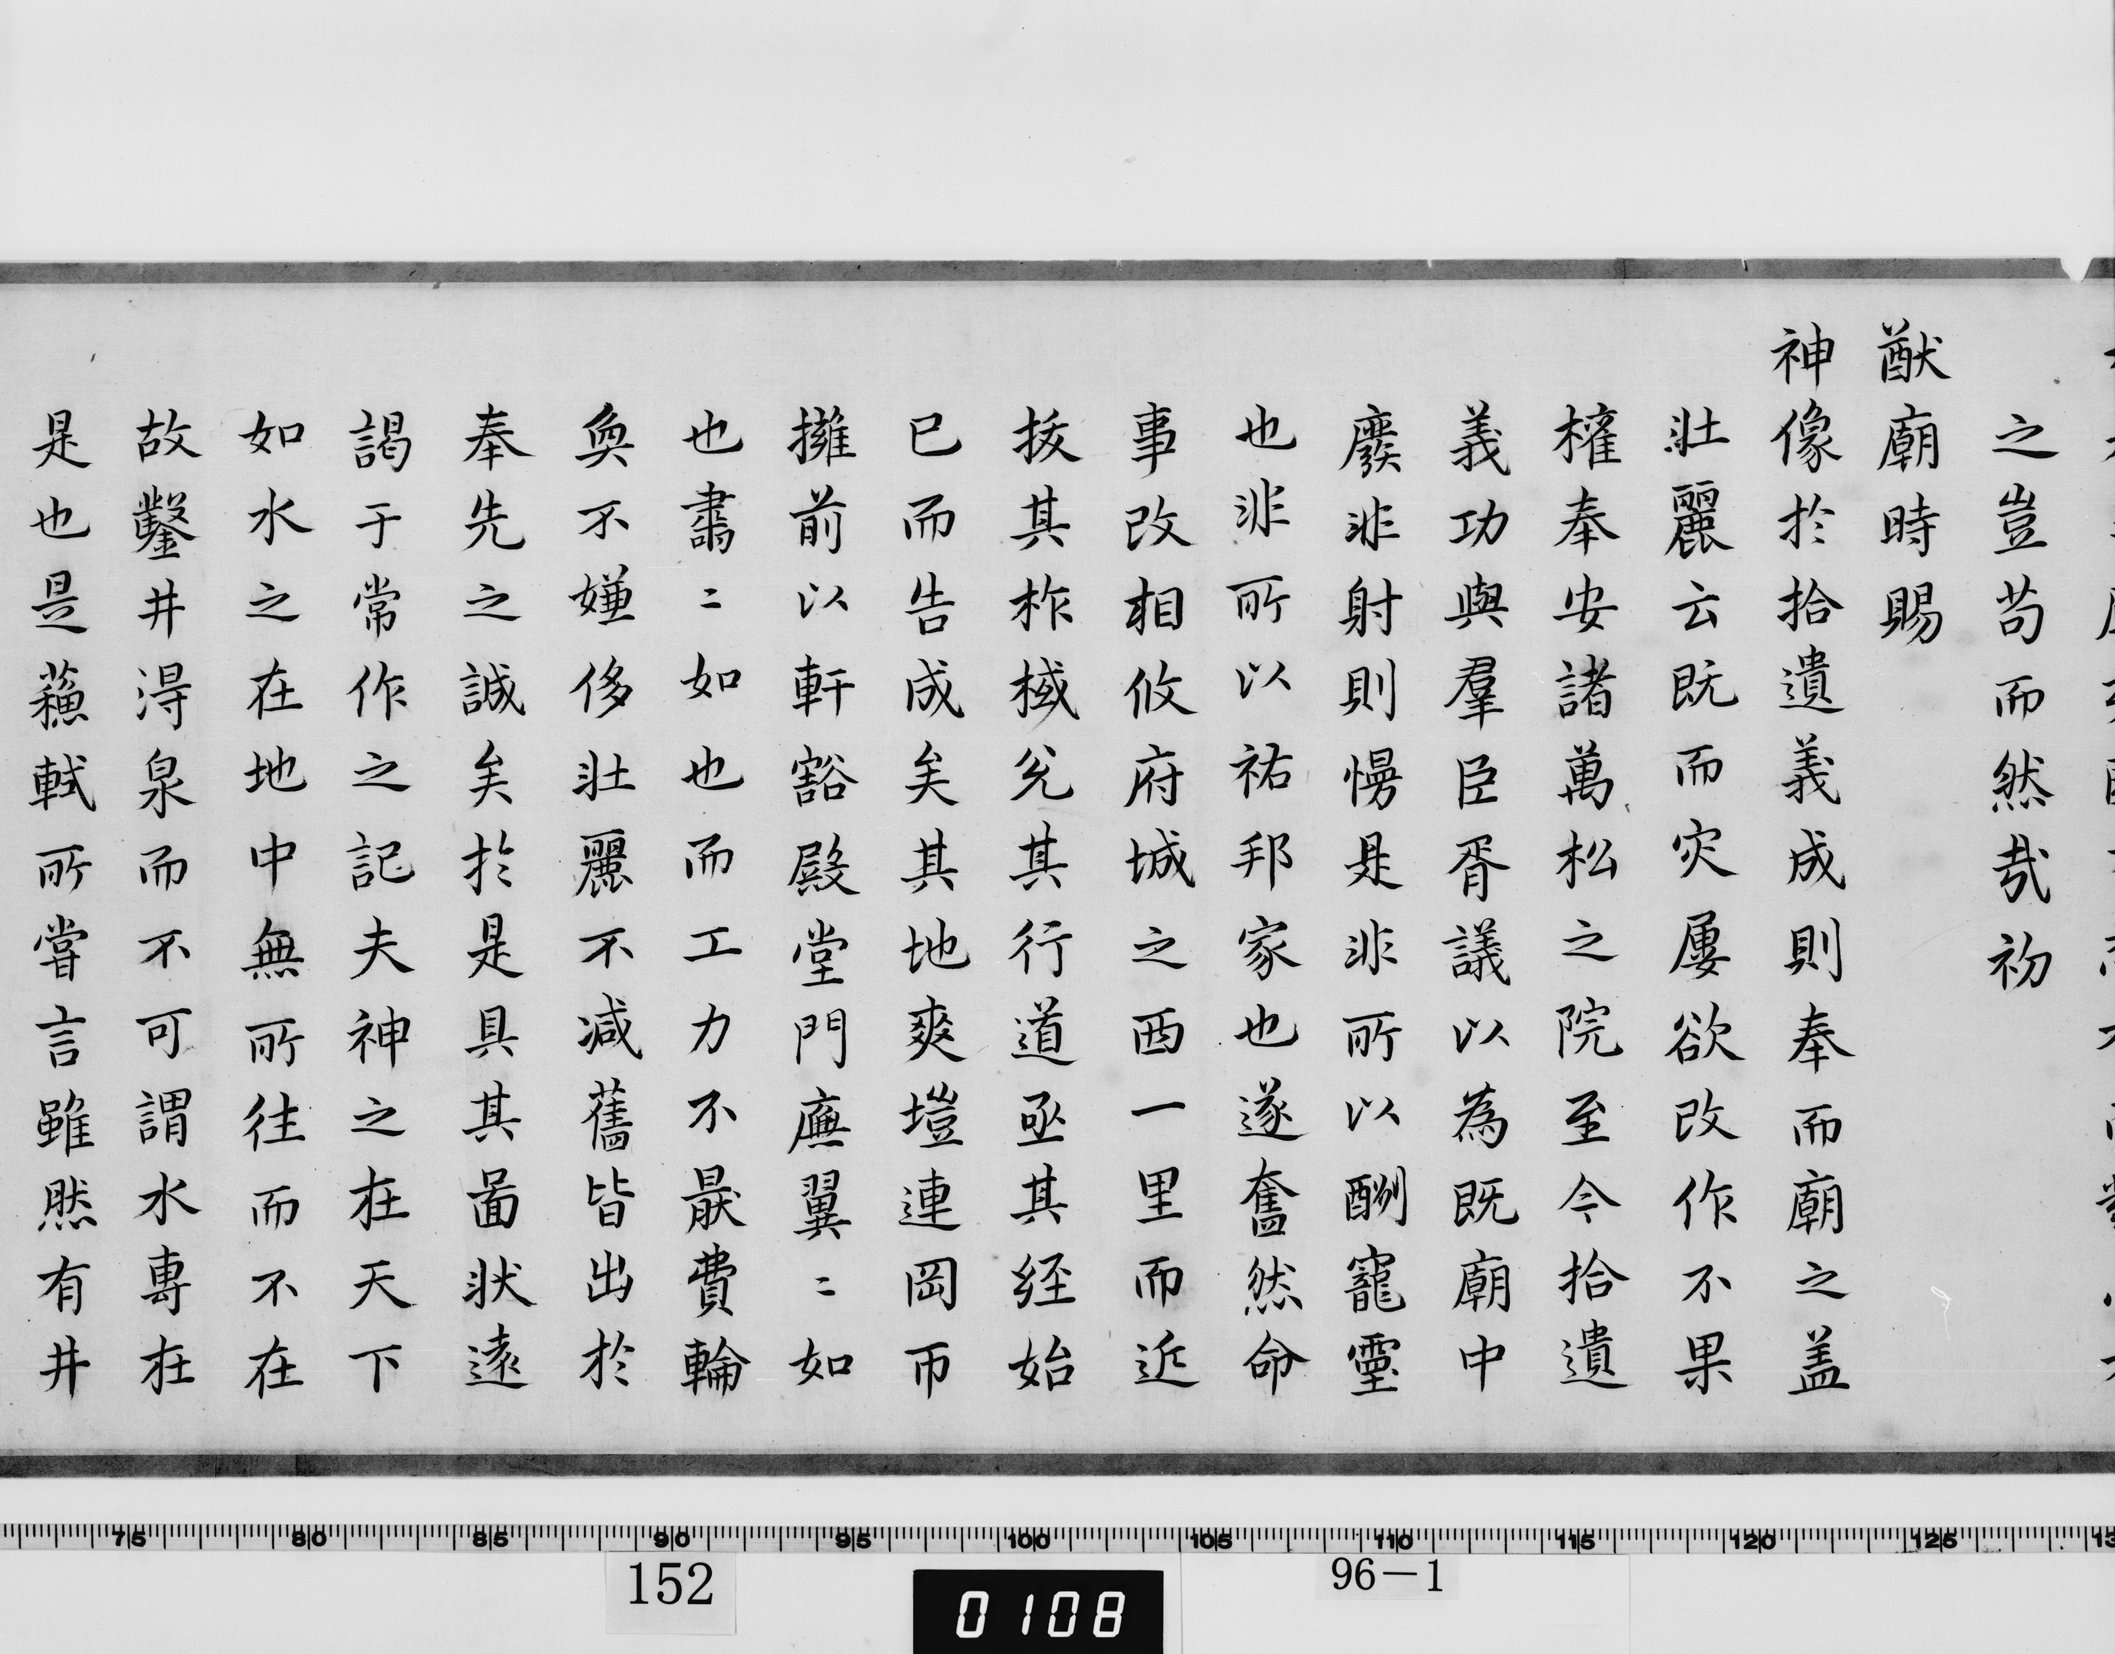 之豈苟而然哉初
猷廟時賜
神像於拾遺義成則奉而廟之盖
壯麗云既而灾屢欲改作不果
権奉安諸萬松之院至今拾遺
義功與羣臣胥議以為既廟中
廢非射則慢是非所以酬寵靈
也非所以祐邦家也遂奮然命
事改相攸府城之西一里而近
拔其柞棫兊其行道亟其経始
已而告成矣其地爽塏連岡帀
擁前以軒豁殿堂門廡翼〻如
也翯〻如也而工力不厭費輪
奐不嫌侈壯麗不減舊皆出於
奉先之誠矣於是具其啚狀遠
謁于常作之記夫神之在天下
如水之在地中無所往而不在
故鑿井得泉而不可謂水專在
是也是蘓軾所嘗言雖然有井
75 80 85 90 95 100 105 110 115 120 125 13
152
0108
96-1